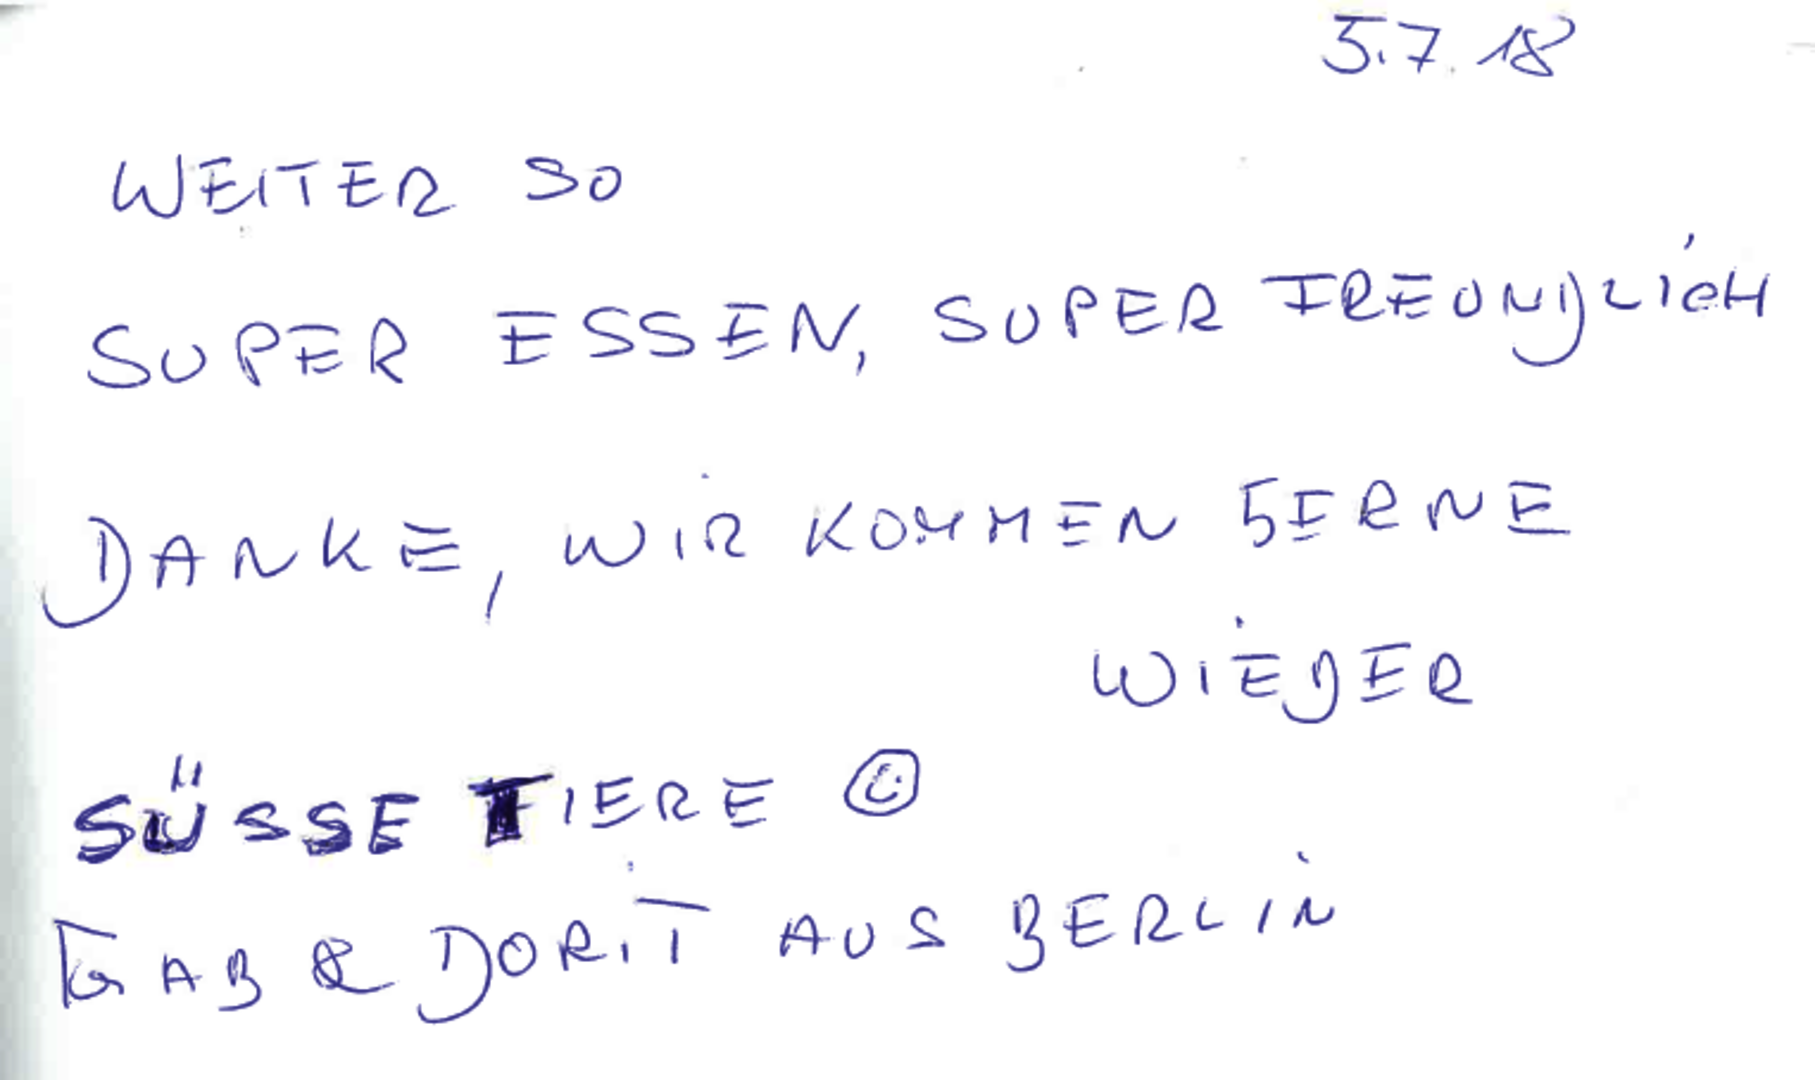 5.7.18
WEITER SO
SUPER ESSEN, SUPER FREUNDLICH
DANKE, WIR KOMMEN GERNE
WIEDER
SÜSSE TIERE ☺
& DORIT AUS BERLIN